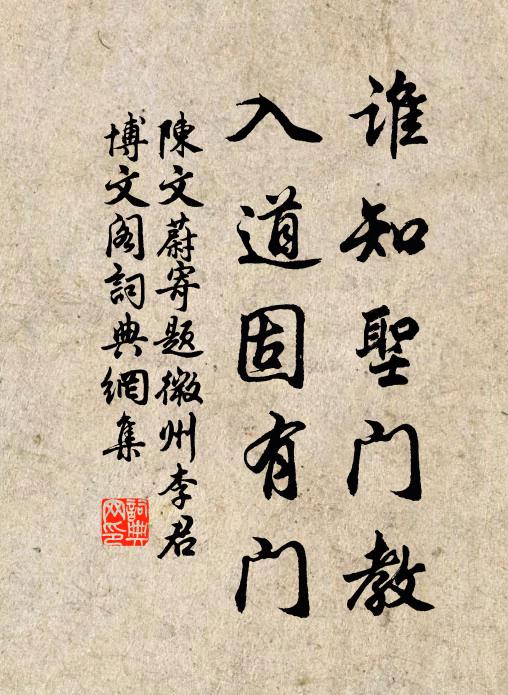 誰知聖門教
入道固有門
陳文蔚寄題徽州李君
博文阁詞典網集
詞典
网印